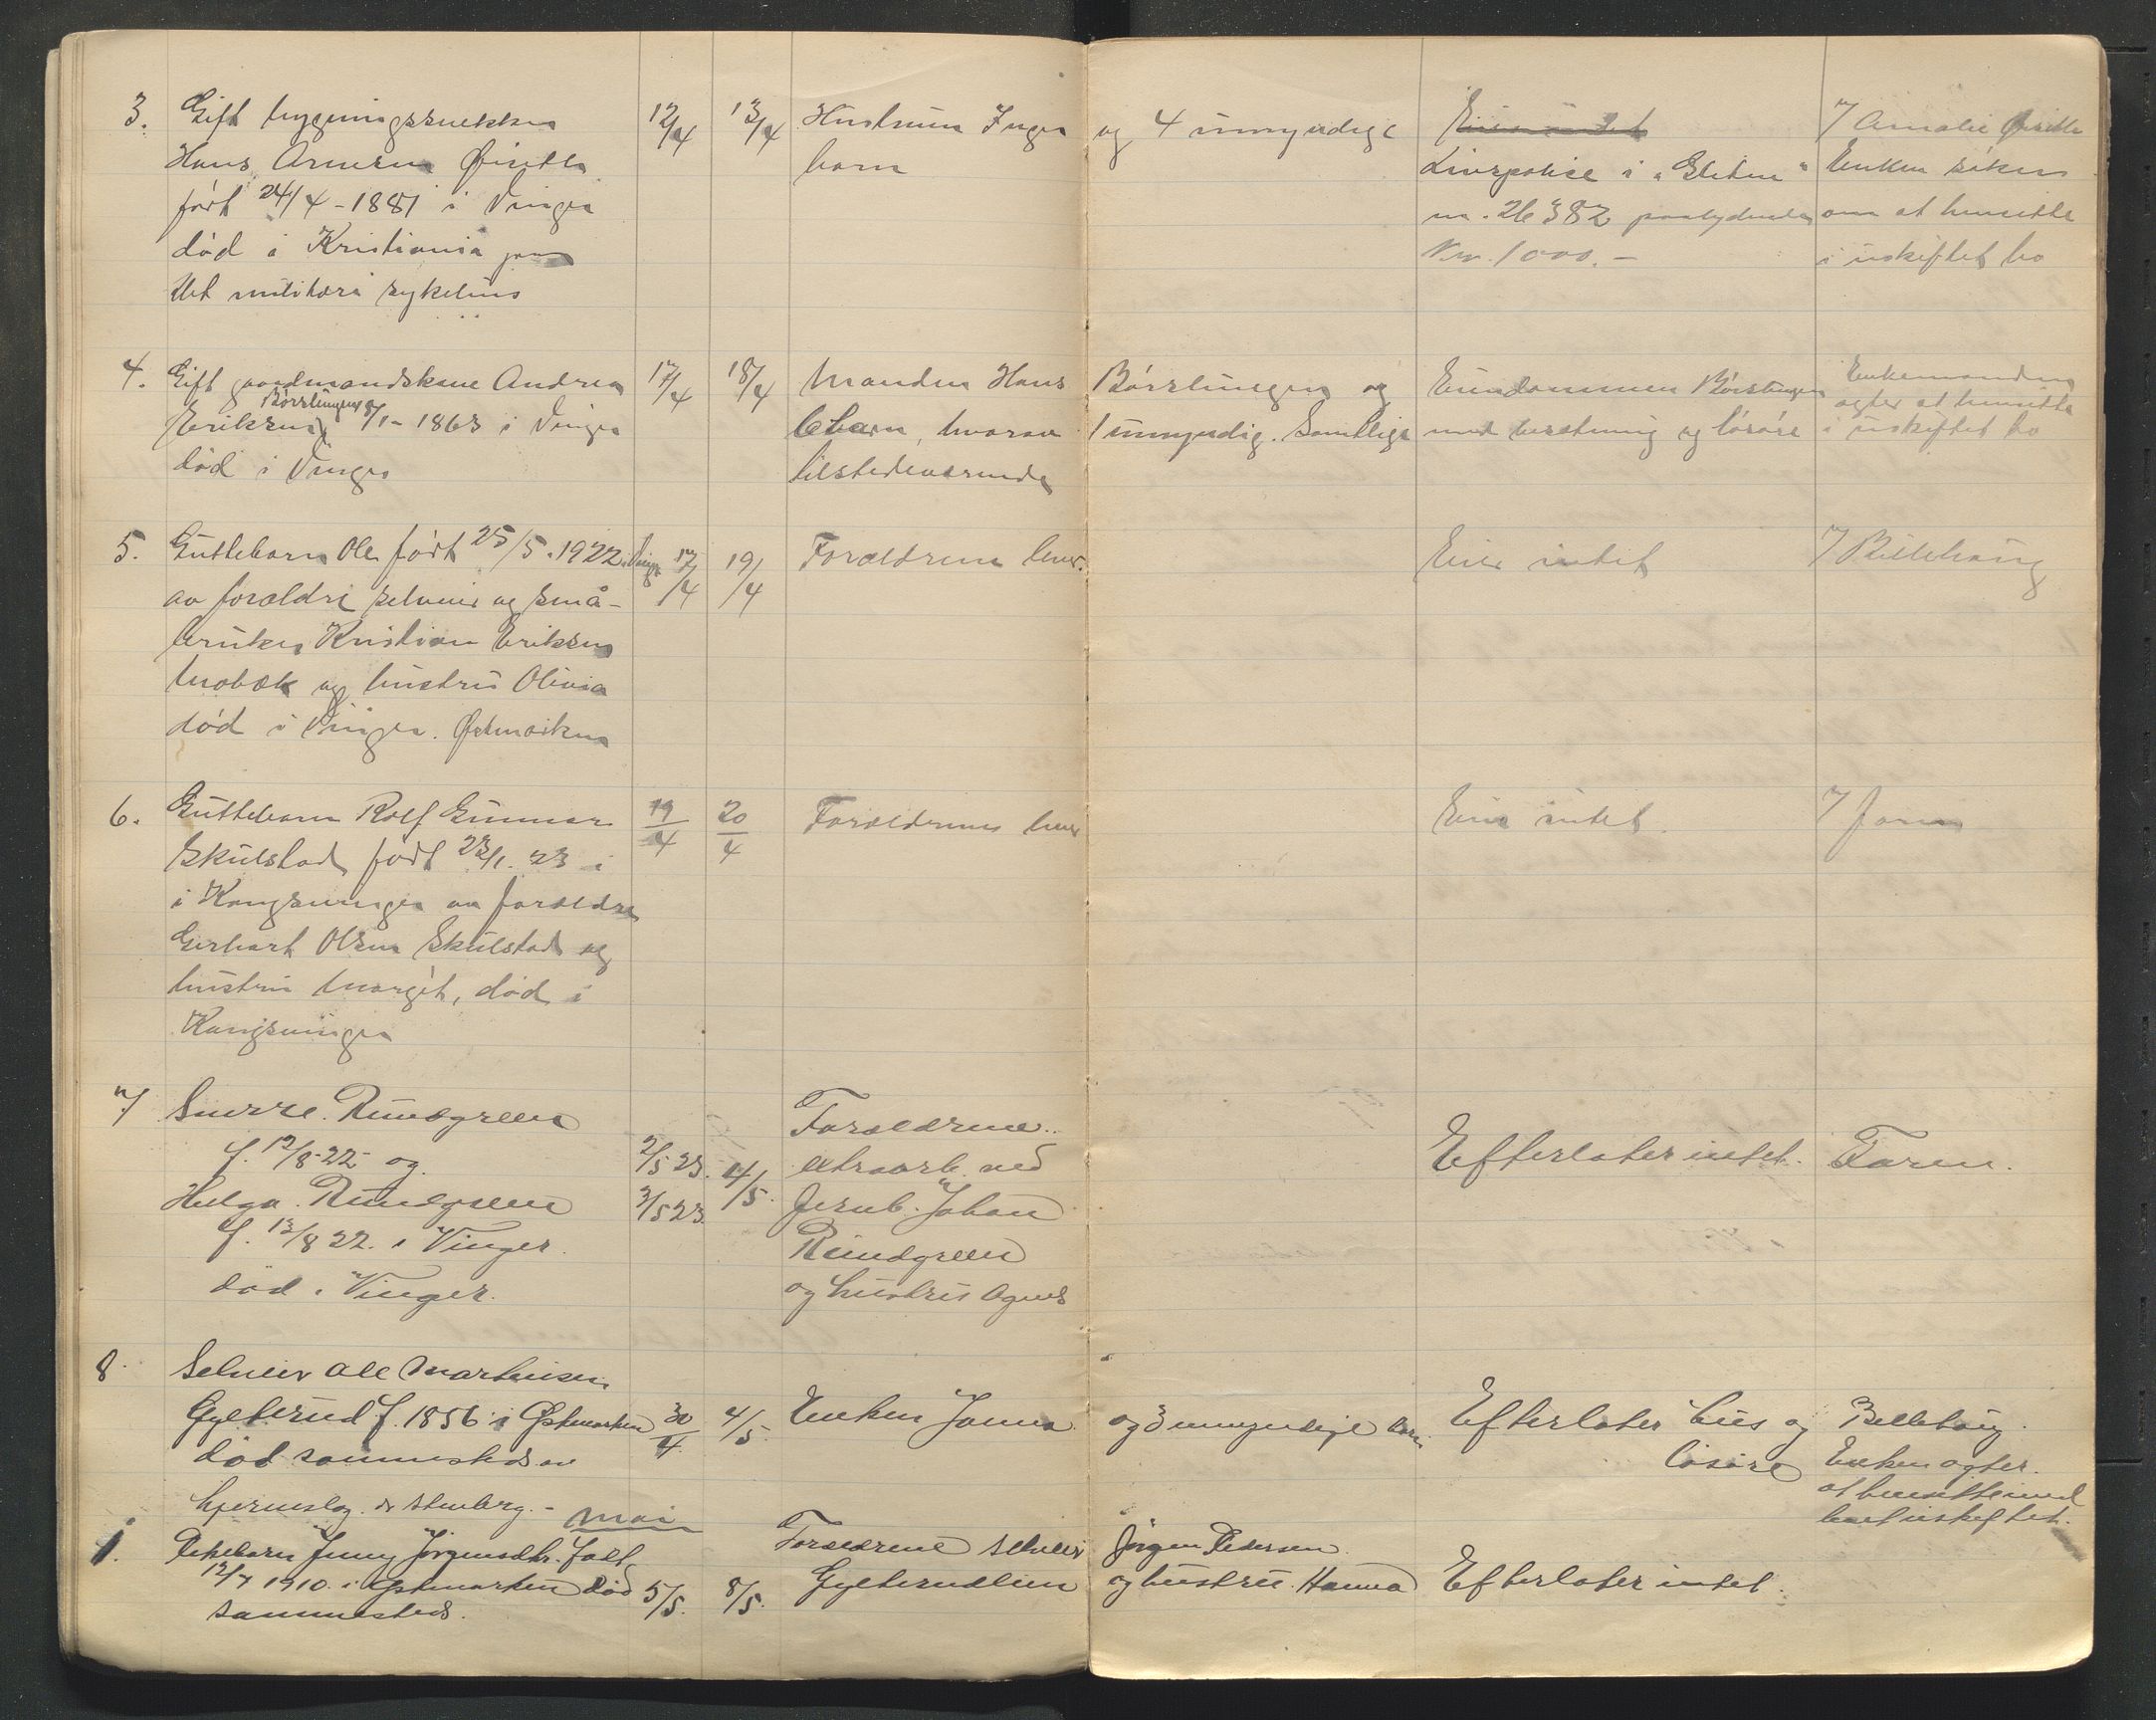 3. Gift bygningssnekker 12/4 13/4 Hustruen Inga og 4 umyndige Eier intet 7 Amalie Øiseth
Hans Arnesen Øiseth barn Livspolise i "Gletne" Enken søker
født 24/4-1881 i Vinger nr. 26382 paalydende om at hensitte
død i Kristiania paa Kr. 1000.- i uskiftet bo
det militære sykehus
4. Gift gaardmandskone Andrea 17/4 18/4 Manden Hans Børslungen og Eiendommen Børslungen Enkemanden
Eriksen Børslungen 8/1-1863 i Vinger 6 barn, hvorav 1 umyndig. Samtlige med besetning og løsøre agter at hensitte
død i Vinger tilstedeværende i uskiftet bo
5. Guttebarn Ole født 25/5.1922 i Vinger 17/4 19/4 Forældrene lever. Eier intet 7 Billehaug
av forældre selveier og små-
bruker Kristian Eriksen
Mobæk og hustru Olivia
død i Vinger. Østmarken
6. Guttebarn Rolf Gunnar 19/4 20/4 Forældrene lever Eier intet. 7 faren
Skulstad født 23/1.23 i
i Kongsvinger av forældre
Gerhart Olsen Skulstad og
hustru Margit, død i
Kongsvinger
7 Snorre Rundgreen Forældrene..
f. 12/8-22 og 2/5 23. 4/5. extraarb. ved Efterlater intet. Faren.
Helga Rundgreen 3/5 23. Jernb. Johan
f. 12/8 22. i Vinger. Rundgreen
død i Vinger. og hustru Agnes
8. Selveier Ole Martinsen
Gylterud f. 1856 i Østmarken 30/4 4/5. Enken Janna og 3 umyndige barn. Efterlater hus og Billehaug.
død sammesteds av løsøre Enken agter
hjerneslag. dr Stenberg. - at hensitte med
mai boet uskiftet.
1. Pikebarn Jenny Jørgensdtr. født Forældrene selveier Jørgen Pedersen
12/7 1910. i Østmarken død 5/5. 8/5. Gylterudlien og hustru Hanna Efterlater intet.
sammesteds.